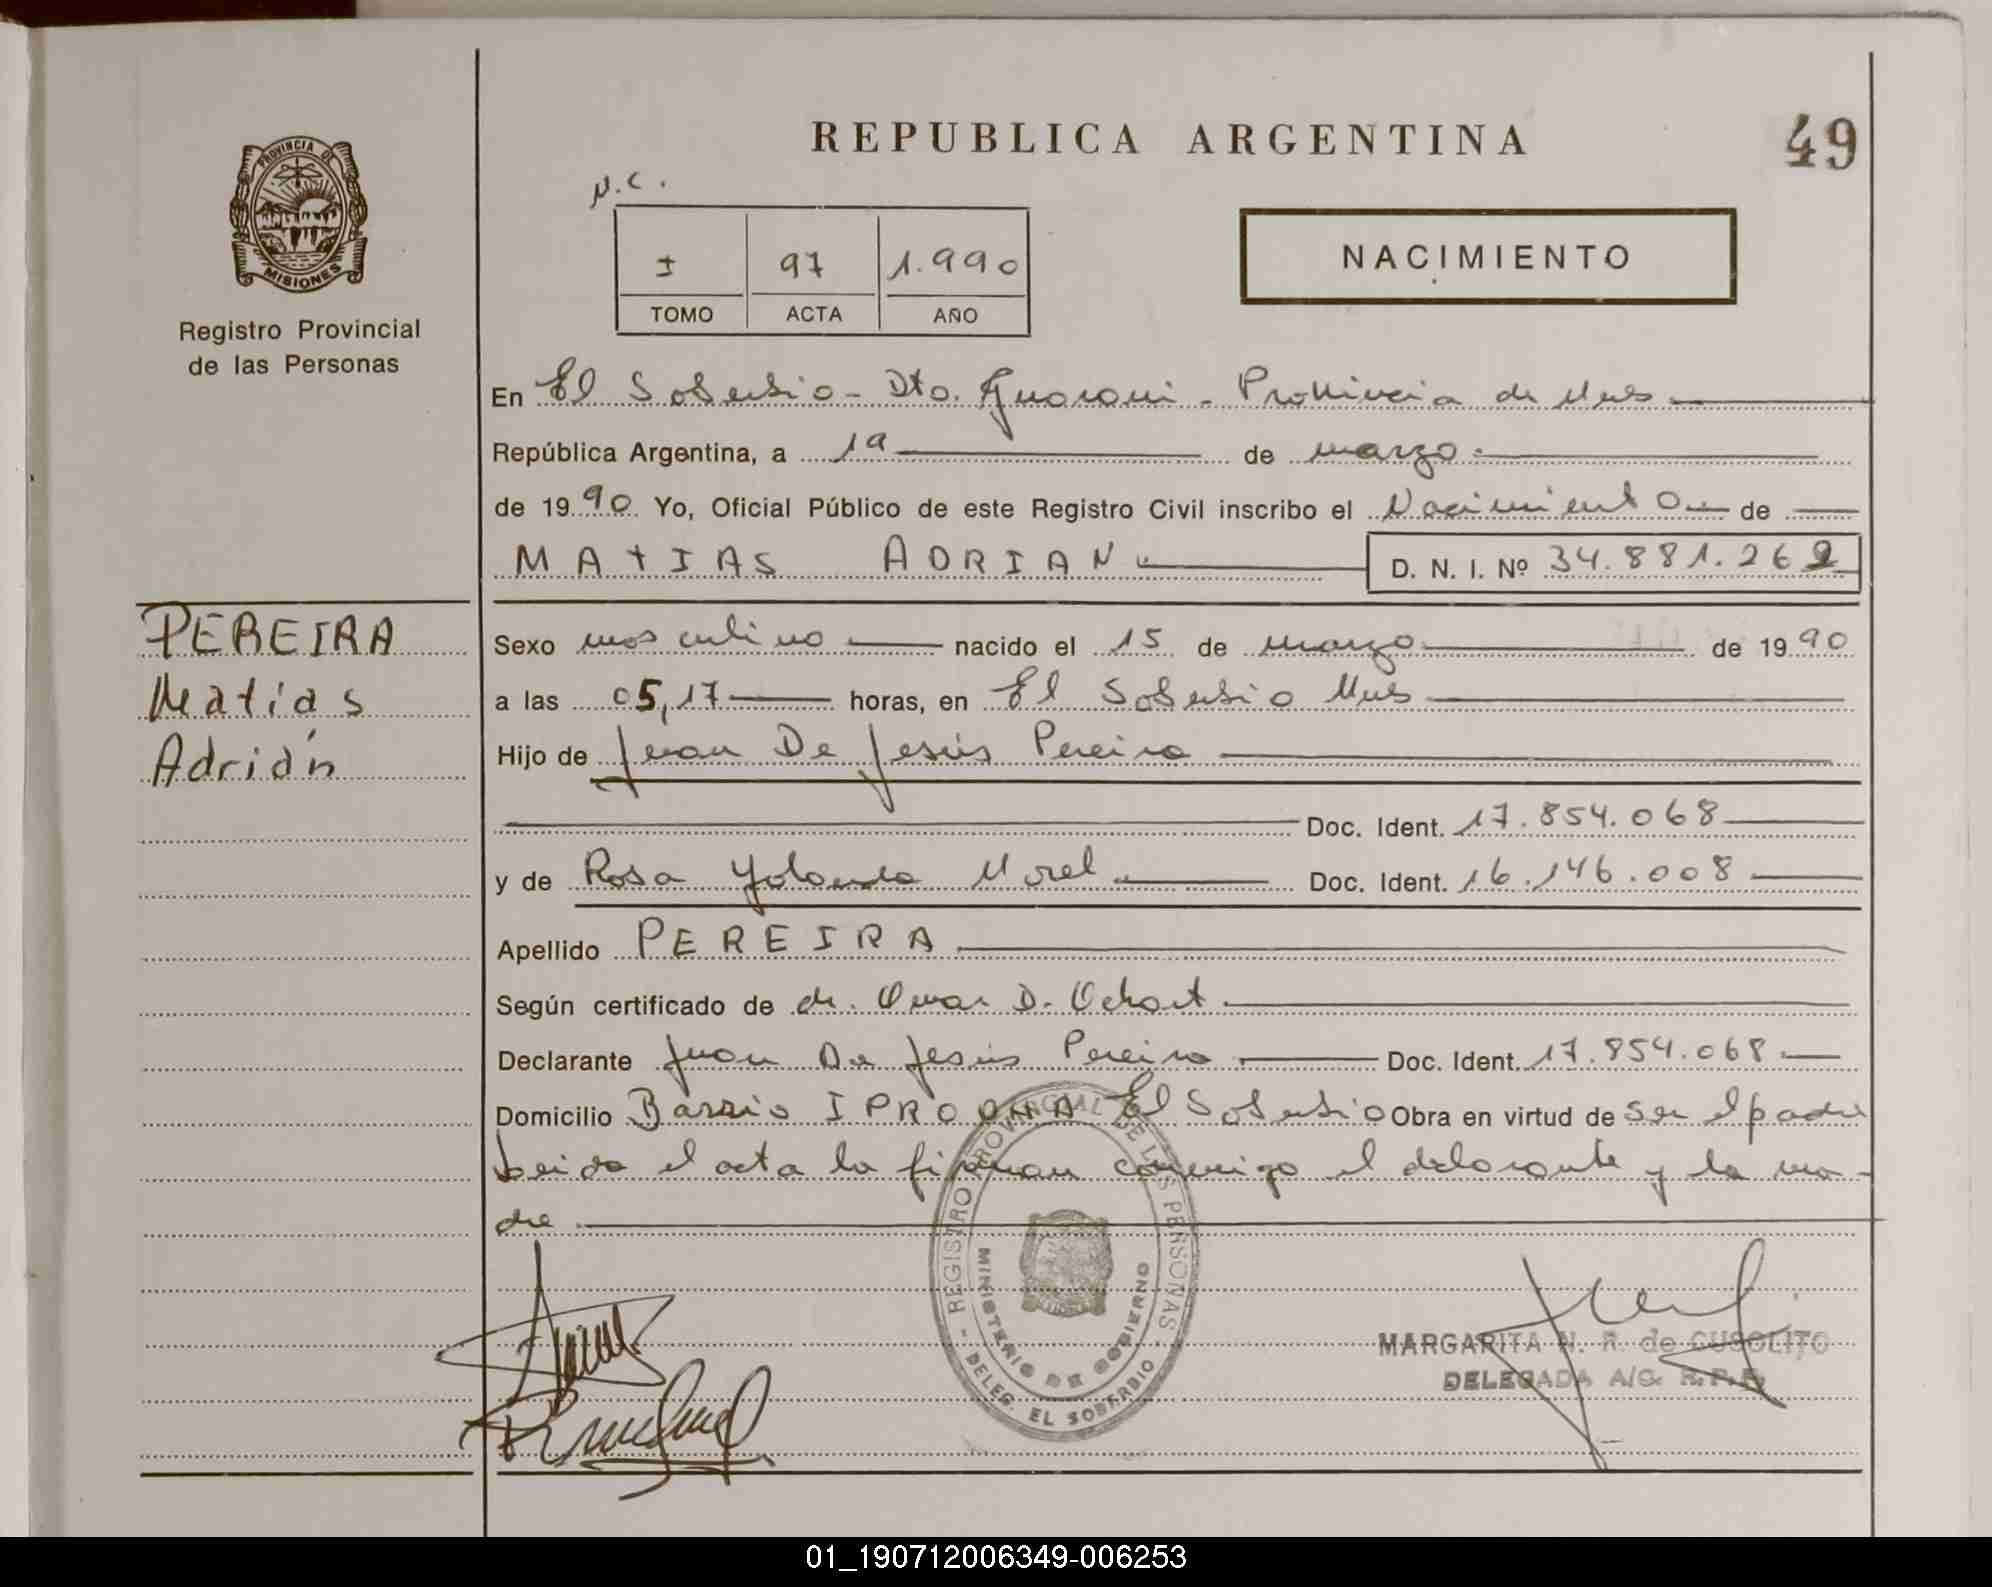 REPUBLICA ARGENTINA
49
N.C.
PROVINCIA DE
MISIONES
Registro Provincial
de las Personas
I 97 1.990
TOMO ACTA AÑO
NACIMIENTO
En El Soberbio - Dto. Guarani - Provincia de Mnes
República Argentina, a 19 de marzo
de 1990 Yo, Oficial Público de este Registro Civil inscribo el Nacimiento de
MATIAS ADRIAN D. N. I. Nº 34.881.262
PEREIRA
Matías
Adrián
Sexo masculino nacido el 15 de marzo de 1990
a las 05,17 horas, en El Soberbio Mnes
Hijo de Juan De Jesús Pereira
Doc. Ident. 17.854.068
y de Rosa Yolanda Morel Doc. Ident. 16.146.008
Apellido PEREIRA
Según certificado de dr. Omar D.
Declarante Juan De Jesús Pereira Doc. Ident. 17.854.068
Domicilio Barrio IPRODHA El Soberbio Obra en virtud de ser el padre
leida el acta la firman conmigo el declarante y la ma-
dre
REGISTRO PROVINCIAL DE LAS PERSONAS
MINISTERIO DE GOBIERNO
- DELEG. EL SOBERBIO -
MARGARITA N. R. de CUSOLITO
DELEGADA A/C. R.P.P.
01_190712006349-006253